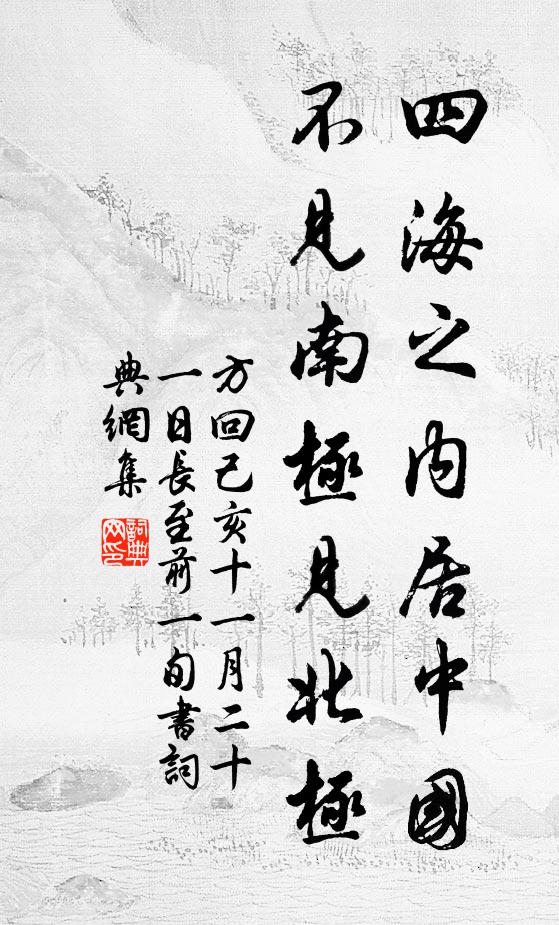 四海之内居中國
不見南極見北極
方回己亥十一月二十
一日長至前一旬書詞
典網集
詞典网印